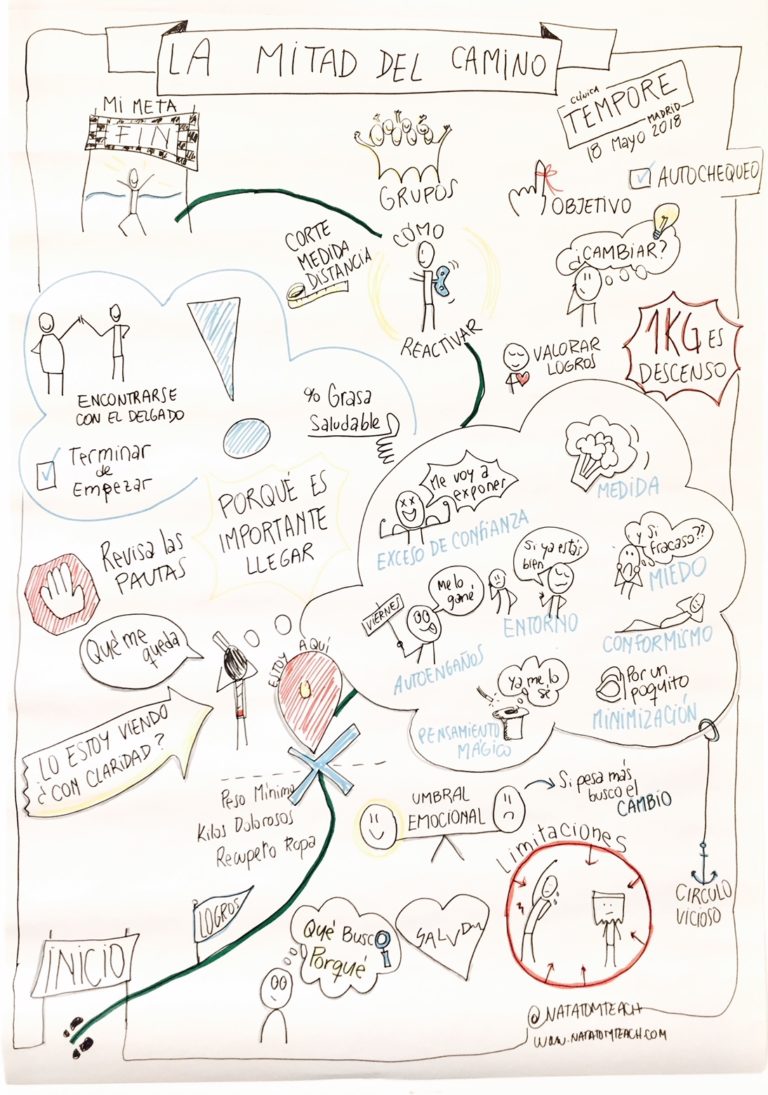 LA MITAD DEL CAMINO
MI META
FIN
GRUPOS
CLÍNICA
TEMPORE
MADRID
18 MAYO 2018
OBJETIVO
AUTOCHEQUEO
CORTE
MEDIDA
DISTANCIA
CÓMO
REACTIVAR
¿CAMBIAR?
VALORAR
LOGROS
1KG ES
DESCENSO
ENCONTRARSE
CON EL DELGADO
Terminar
de
Empezar
% Grasa
Saludable
PORQUÉ ES
IMPORTANTE
LLEGAR
Revisa las
PAUTAS
Me voy a
exponer
EXCESO DE CONFIANZA
MEDIDA
Si ya estás
bien
ENTORNO
Y Si
fracaso??
MIEDO
VIERNES
Me lo
gané
AUTOENGAÑOS
CONFORMISMO
Ya me lo
sé
PENSAMIENTO
MÁGICO
Por un
poquito
MINIMIZACIÓN
Qué me
queda
ESTOY AQUÍ
LO ESTOY VIENDO
¿CON CLARIDAD?
Peso Mínimo
Kilos Dolorosos
Recupero Ropa
UMBRAL
EMOCIONAL
Si pesa más
busco el
CAMBIO
Limitaciones
CIRCULO
VICIOSO
LOGROS
INICIO
Qué Busco
Porqué
SALUD
@NATATOMTEACH
WWW.NATATOMTEACH.COM